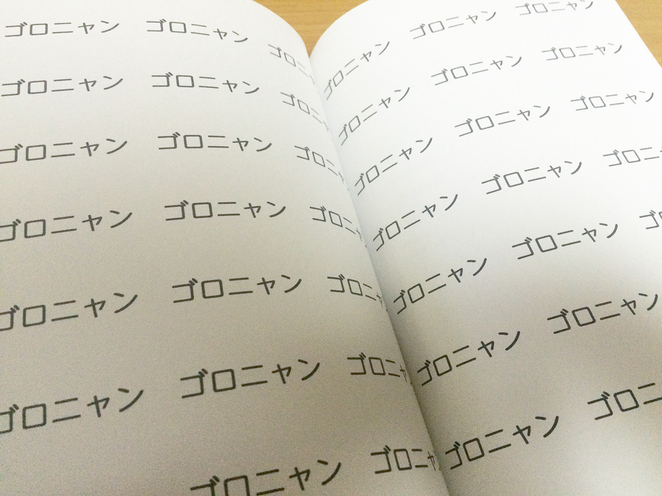 ゴロニャン ゴロニャン ゴロニャン
ゴロニャン ゴロニャン ゴロニャン
ゴロニャン ゴロニャン ゴロニャン
ゴロニャン ゴロニャン ゴロニャン
ゴロニャン ゴロニャン ゴロニャン
ゴロニャン ゴロニャン ゴロニャン
ゴロニャン ゴロニャン
ゴロニャン ゴロニャン ゴロニャン
ゴロニャン ゴロニャン ゴロニャン
ゴロニャン ゴロニャン ゴロニャン
ゴロニャン ゴロニャン ゴロニ
ゴロニャン ゴロニャン ゴ
ゴロニャン ゴロニャン
ゴロニャン ゴロニ